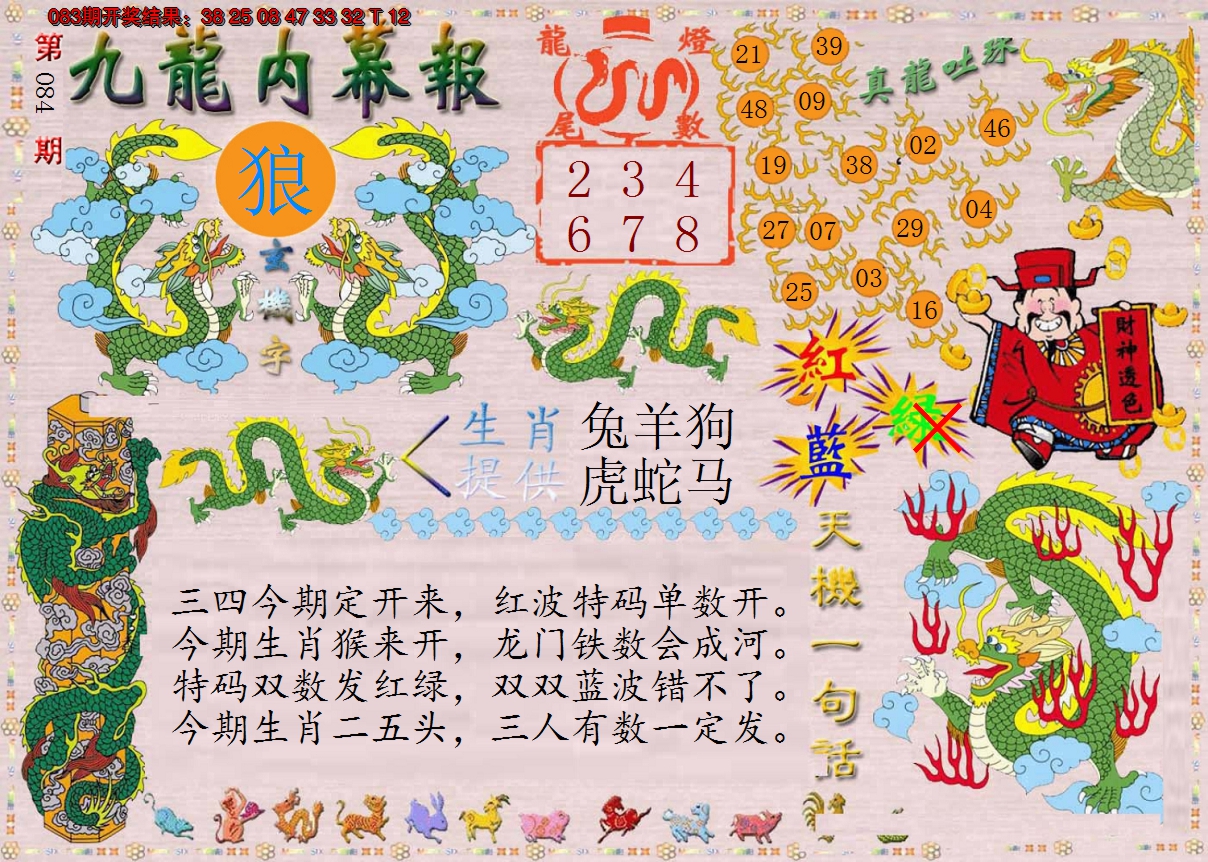 083期开奖结果：38 25 08 47 33 32 T 12
第084期
九龍内幕報
龍燈
尾數
2 3 4
6 7 8
狼
玄機字
真龍吐珠
21 39
48 09
19 38 02 46
27 07 29 04
25 03 16
財神透色
紅
綠
藍
生肖 兔羊狗
提供 虎蛇马
天機一句話
三四今期定开来，红波特码单数开。
今期生肖猴来开，龙门铁数会成河。
特码双数发红绿，双双蓝波错不了。
今期生肖二五头，三人有数一定发。